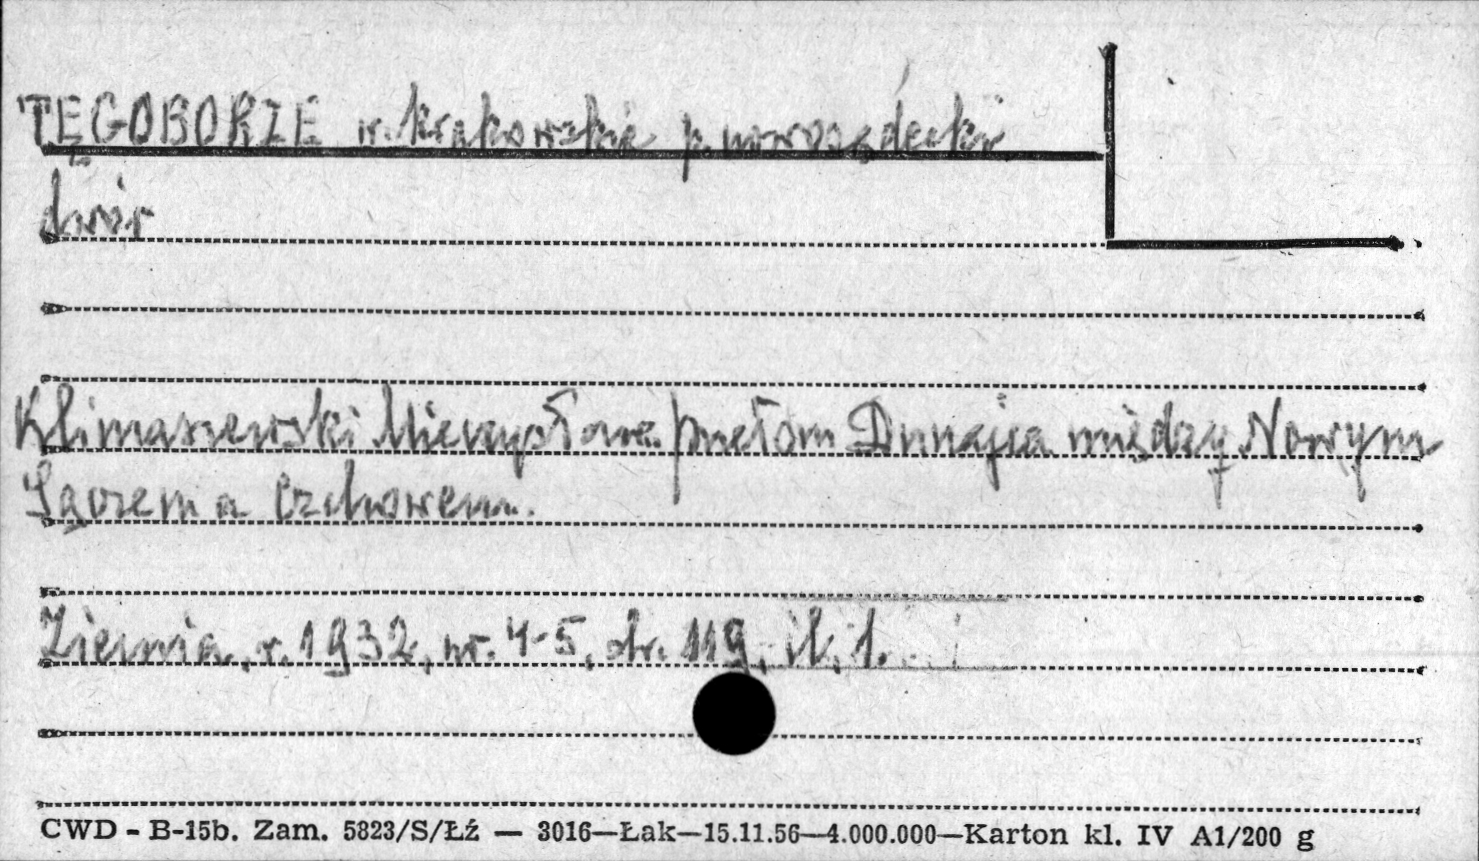 TĘGOBORZE w. krakowskie p. nowosądecki
dwór
Klimaszewski Mieczysław. Przełom Dunajca między Nowym
Sączem a Czchowem.
Ziemia, r. 1932, nr. 4-5, str. 119, il. 1.
CWD - B-15b. Zam. 5823/S/Łź — 3016—Łak—15.11.56—4.000.000—Karton kl. IV A1/200 g